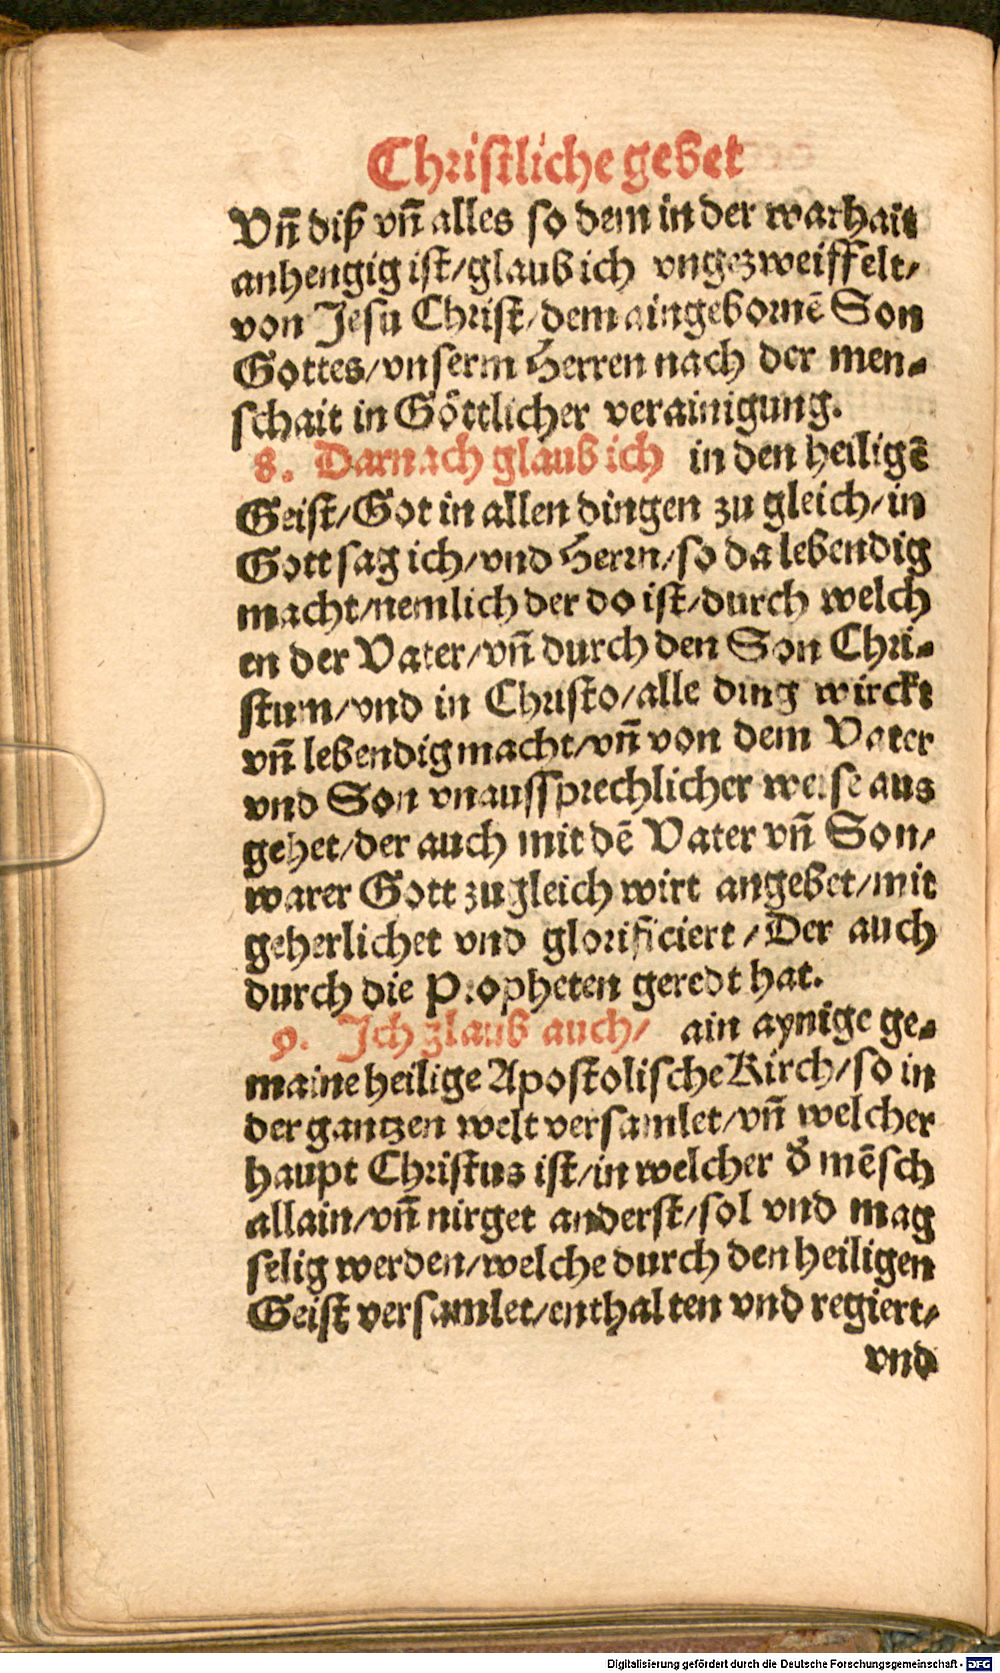 Christliche gebet
Vñ diß vñ alles so dem in der warhait
anhengig ist/glaub ich vngezweiffelt/
von Jesu Christ/dem aingebornē Son
Gottes/vnserm Herren nach der men-
schait in Göttlicher verainigung.
8. Darnach glaub ich in den heiligē
Geist/Got in allen dingen zu gleich/in
Gott sag ich/vnd Herrn/so da lebendig
macht/nemlich der do ist/durch welch
en der Vater/vñ durch den Son Chri-
stum/vnd in Christo/alle ding wirckt
vñ lebendig macht/vñ von dem Vater
vnd Son vnaussprechlicher weise aus
gehet/der auch mit dē Vater vñ Son/
warer Gott zugleich wirt angebet/mit
geherlichet vnd glorificiert/Der auch
durch die Propheten geredt hat.
9. Ich glaub auch/ ain aynige ge-
maine heilige Apostolische Kirch/so in
der gantzen welt versamlet/vñ welcher
haupt Christus ist/in welcher d̄ mēsch
allain/vñ nirget anderst/sol vnd mag
selig werden/welche durch den heiligen
Geist versamlet/enthalten vnd regiert/
vnd
Digitalisierung gefördert durch die Deutsche Forschungsgemeinschaft - DFG